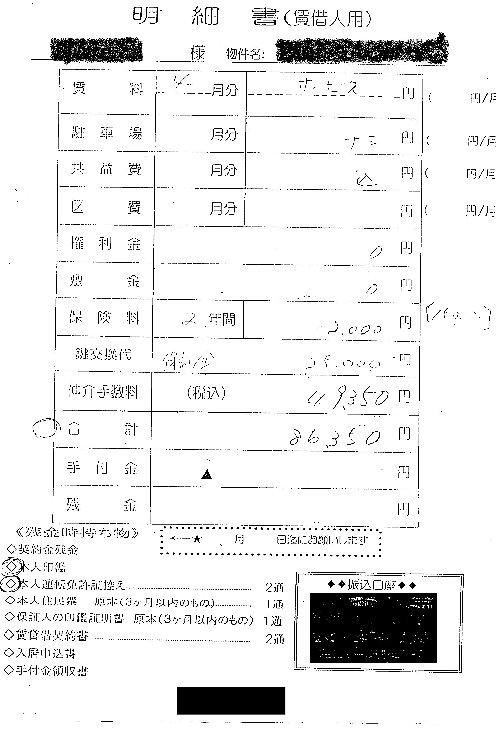 明細書(賃借人用)
様 物件名:
賃料 月分 サービス 円 ( 円/月
駐車場 月分 円 ( 円/月
共益費 月分 込 円 ( 円/月
区費 月分 円 ( 円/月
権利金 0 円
敷金 0 円
保険料 2 年間 2,000 円
鍵交換代 000 円
仲介手数料 (税込) 49350 円
合計 86350 円
手付金 ▲ 円
残金 円
《残金時持ち物》
★ 月 日迄にお願いします
◇契約金残金
◇本人印鑑
◇本人運転免許証控え 2通
◇本人住民票 原本(3ヶ月以内のもの) 1通
◇保証人の印鑑証明書 原本(3ヶ月以内のもの) 1通
◇賃貸借契約書 2通
◇入居申込書
◇手付金領収書
◆◆振込口座◆◆